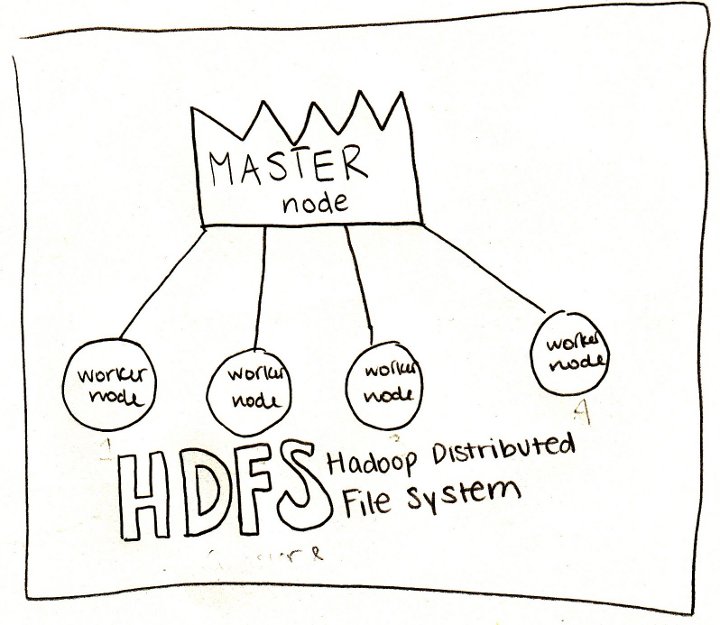 MASTER
node
worker
node
worker
node
worker
node
worker
node
1
3
4
HDFS Hadoop Distributed
File System